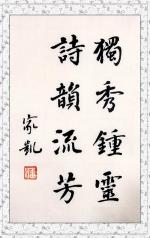 獨秀鍾靈
詩韻流芳
家凱